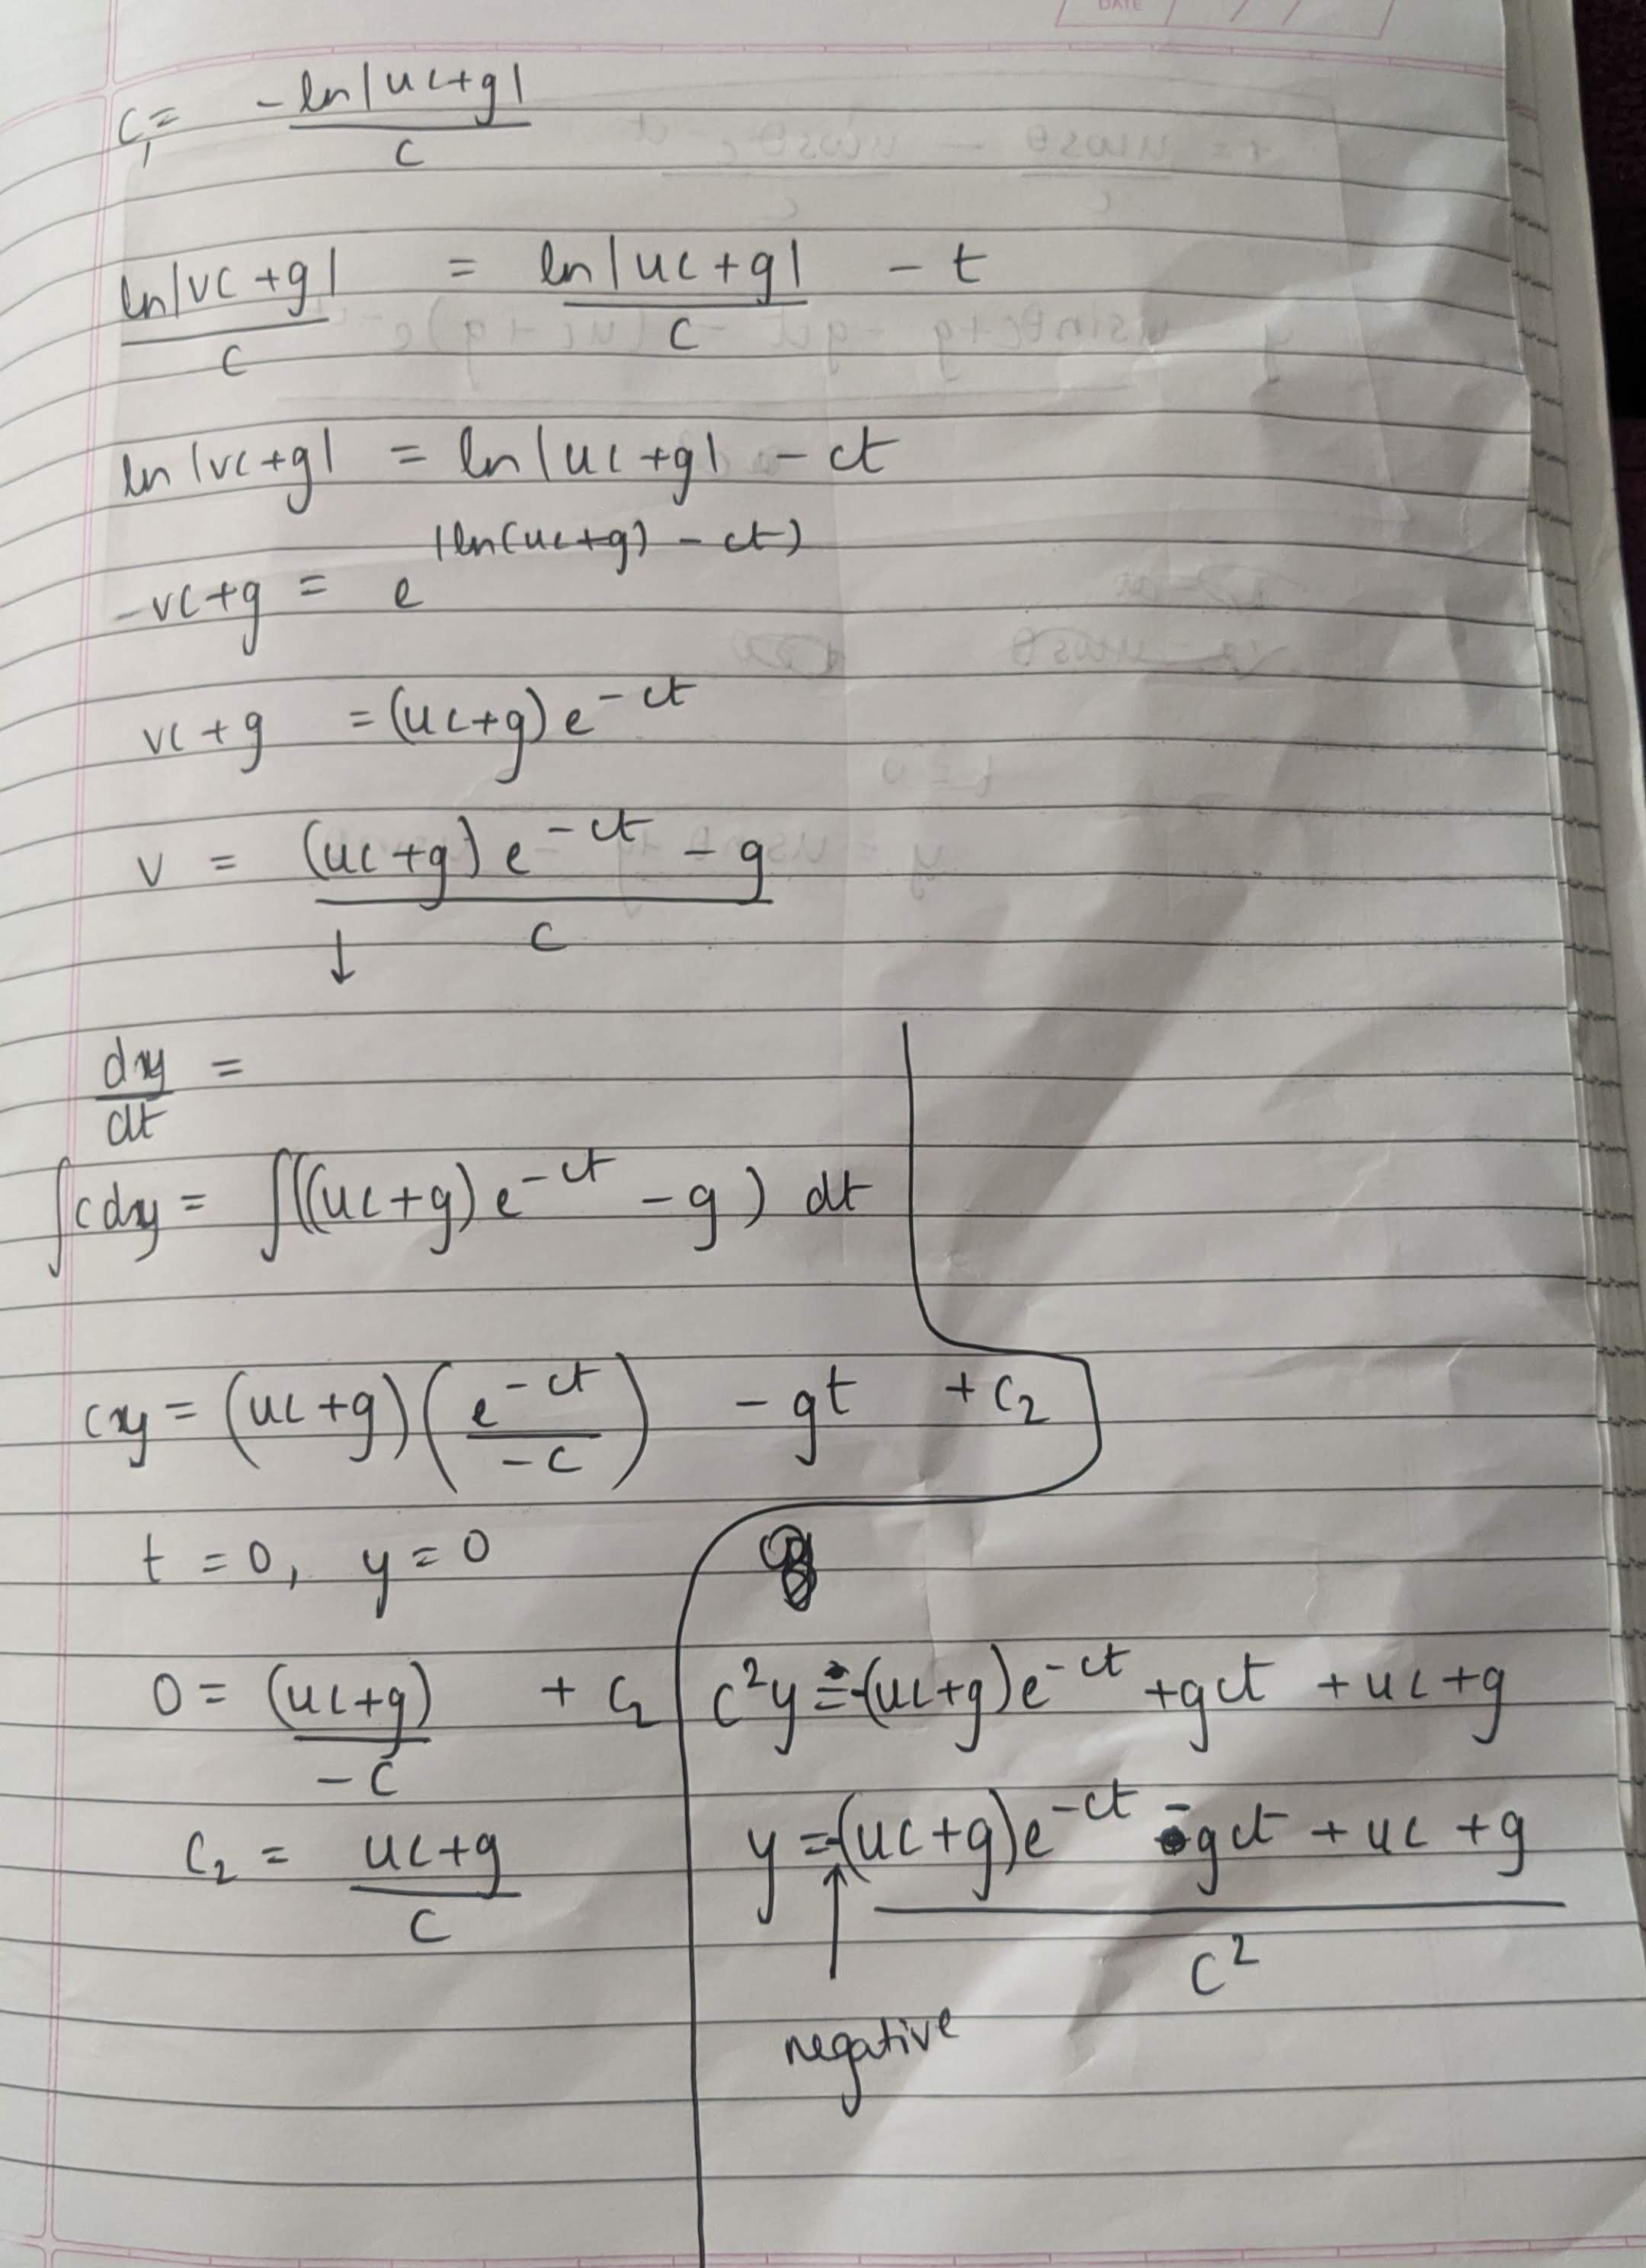 DATE / /
C₁ = -ln|uc+g| / c
ln|vc+g| / c = ln|uc+g| / c - t
ln|vc+g| = ln|uc+g| - ct
-vc+g = e^(ln(uc+g) - ct)
vc+g = (uc+g)e^-ct
v = (uc+g)e^-ct - g / c
↓
dy/dt =
∫cdy = ∫((uc+g)e^-ct - g) dt
cy = (uc+g)(e^-ct / -c) - gt + C₂
t = 0, y = 0
0 = (uc+g) / -c + C₂
C₂ = uc+g / c
c²y = -(uc+g)e^-ct + gct + uc+g
y = -(uc+g)e^-ct - gct + uc + g / c²
↑
negative